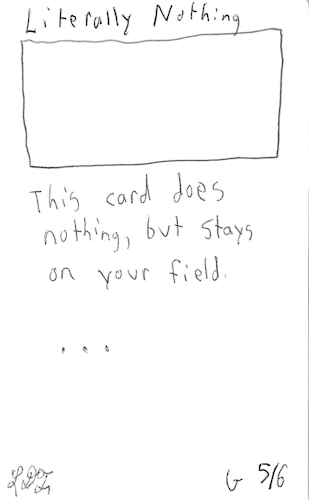 Literally Nothing
This card does
nothing, but stays
on your field.
...
G 5/6